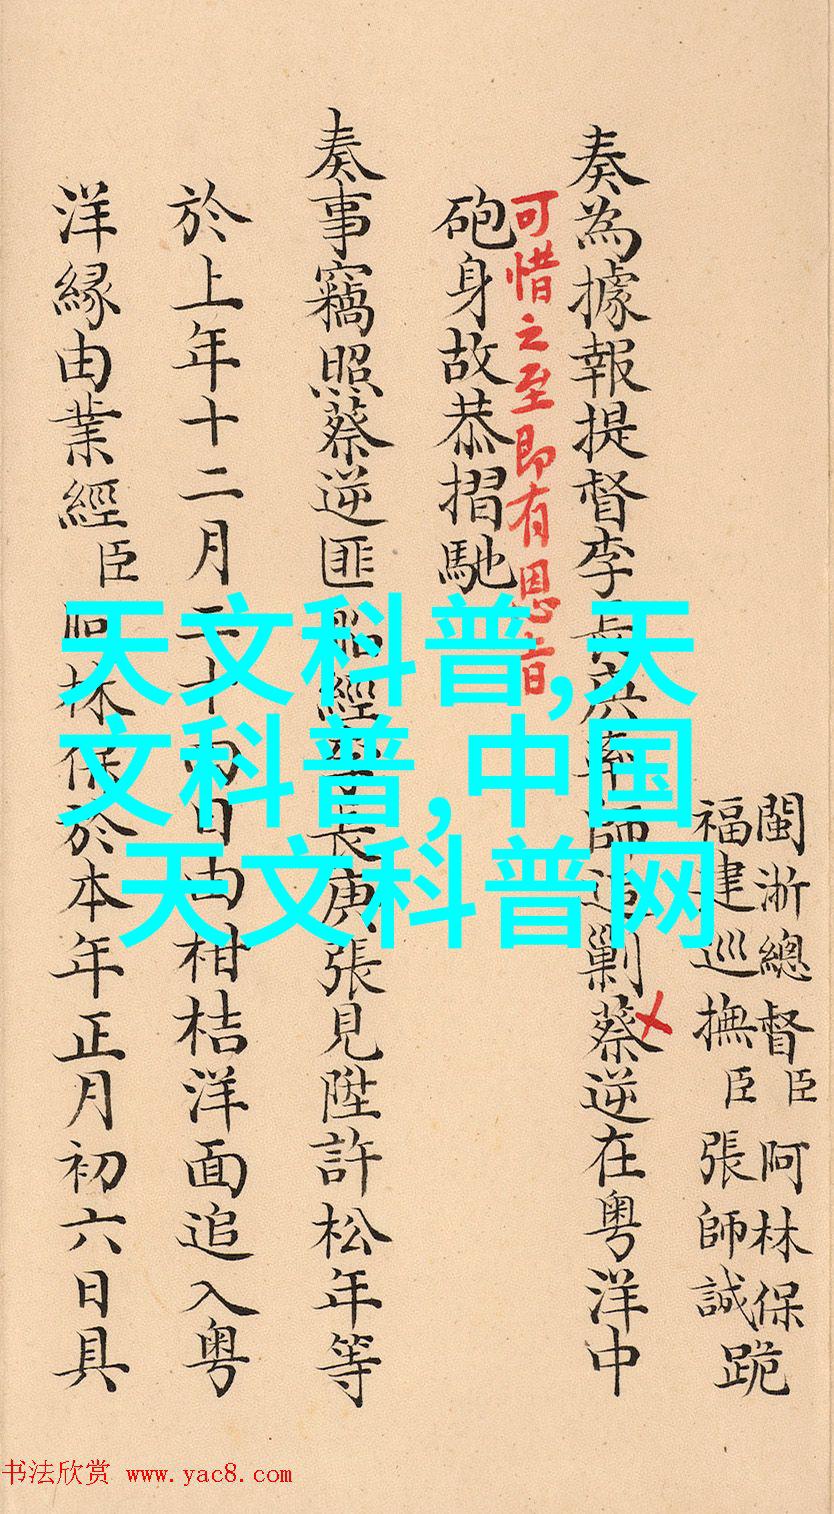 閩浙總督臣阿林保
福建巡撫臣張師誠
跪
奏為據報提督李長庚率師追剿蔡逆在粵洋中
可惜之至即有恩旨
砲身故恭摺馳
奏事竊照蔡逆匪船經長庚張見陞許松年等
於上年十二月二十四日由柑桔洋面追入粵
洋緣由業經臣阿林保於本年正月初六日具
天文科普,天
文科普,中国
天文科普网
书法欣赏 www.yac8.com